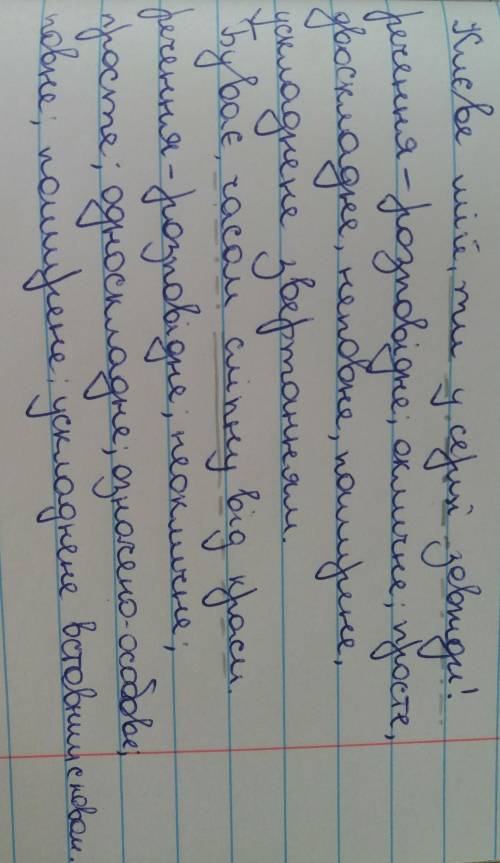 Києве мій, ти у серці завжди!
речення - розповідне; окличне; просте,
двоскладне, неповне, поширене,
ускладнене звертанням.
Буває, часом сліпну від краси.
речення - розповідне; неокличне;
просте; односкладне; означено-особове;
повне; поширене; ускладнене вставним словом.